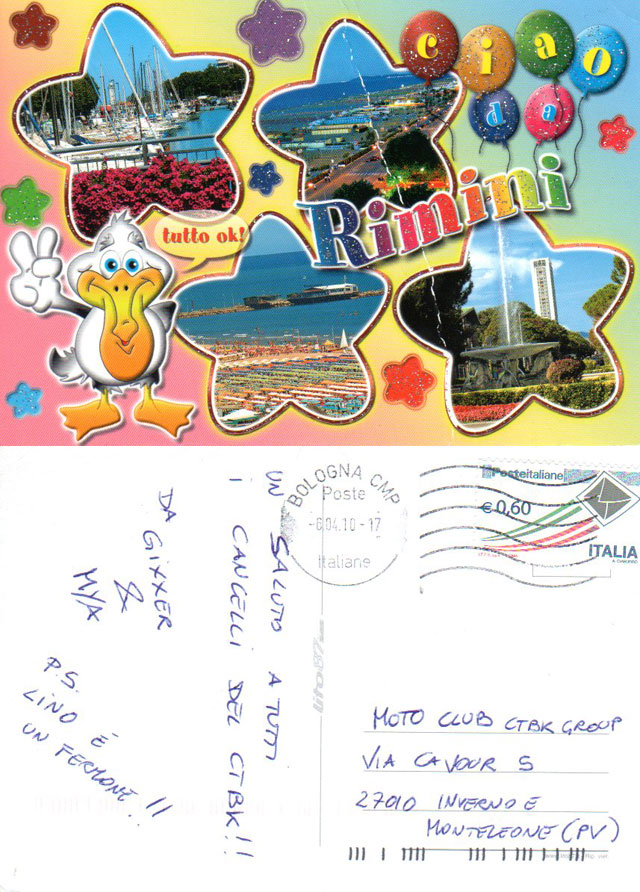 ciao
da
Rimini
tutto ok!
UN SALUTO A TUTTI
I CANCELLI DEL CTBK!!
DA GIXXER
&
MYA
P.S.
LINO È
UN FERMONE!!
BOLOGNA CMP
Poste
-6.04.10-17
italiane
Posteitaliane
€ 0,60
ITALIA
MOTO CLUB CTBK GROUP
VIA CAVOUR 5
27010 INVERNO E
MONTELEONE (PV)